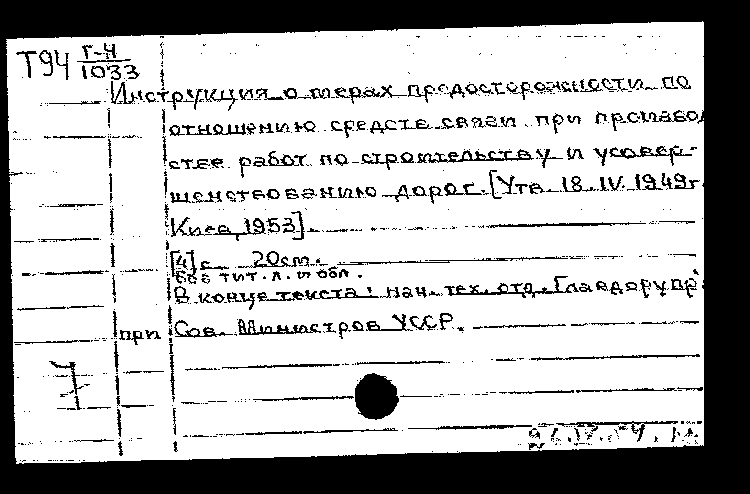 Т94 Г-4
1033
Инструкция о мерах предосторожности по
отношению средств связи при производ
стве работ по строительству и усовер-
шенствованию дорог. [Утв. 18.IV.1949г.
Киев, 1953].
[4] с. 20см.
без тит. л. и обл.
В конце текста: нач. тех. отд. Главдорупр.
при Сов. Министров УССР.
7